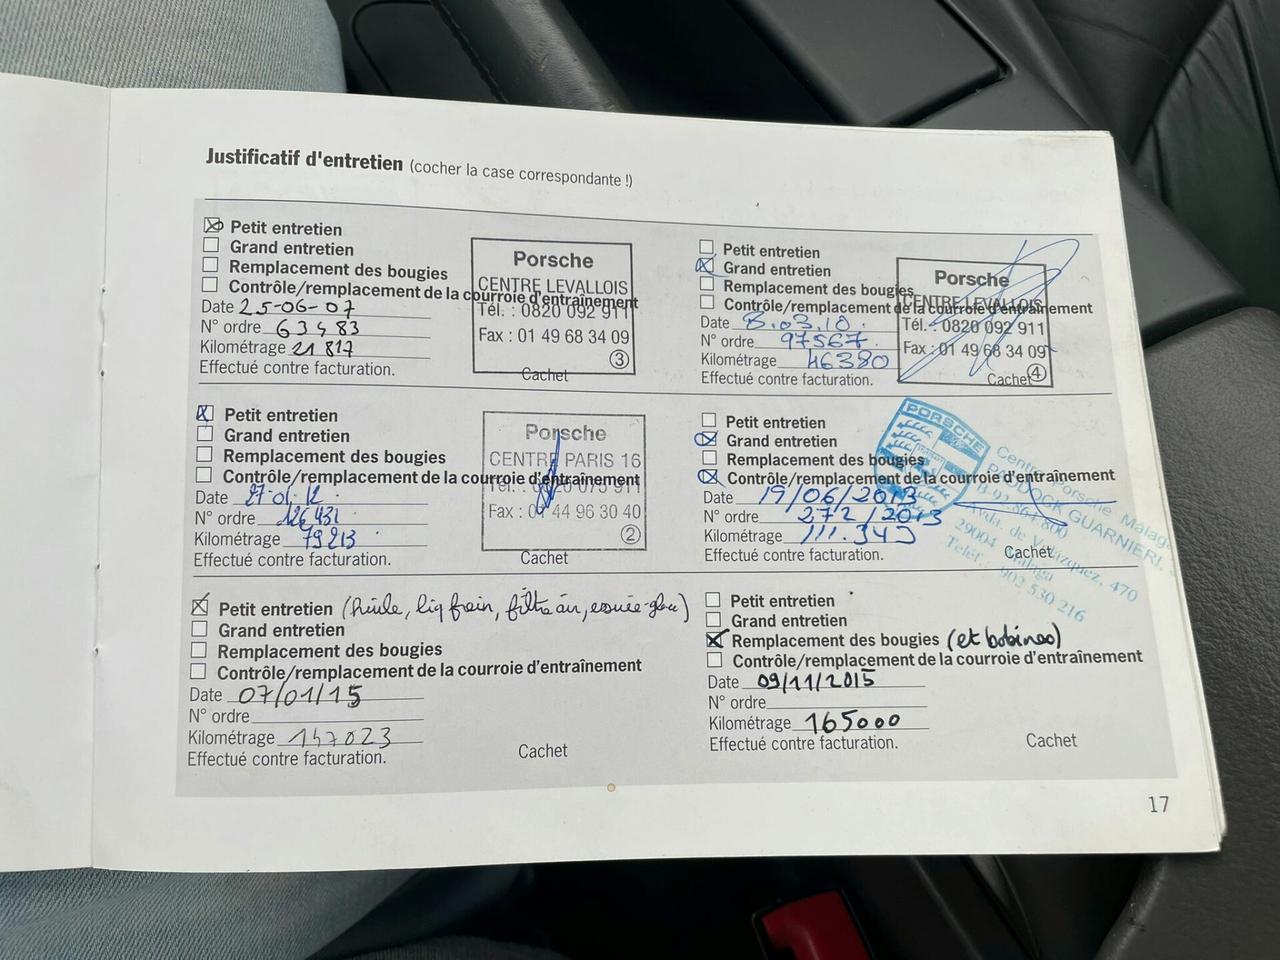 Justificatif d'entretien (cocher la case correspondante !)
Petit entretien
Grand entretien
Remplacement des bougies
Contrôle/remplacement de la courroie d'entraînement
Date 25-06-07
N° ordre 63483
Kilométrage 21 817
Effectué contre facturation.
Porsche
CENTRE LEVALLOIS
Tél. : 0820 092 911
Fax : 01 49 68 34 09
3
Cachet
Petit entretien
Grand entretien
Remplacement des bougies
Contrôle/remplacement de la courroie d'entraînement
Date 8.03.10.
N° ordre 97567
Kilométrage 46380
Effectué contre facturation.
Porsche
CENTRE LEVALLOIS
Tél. : 0820 092 911
Fax : 01 49 68 34 09
4
Cachet
Petit entretien
Grand entretien
Remplacement des bougies
Contrôle/remplacement de la courroie d'entraînement
Date 27.01.12.
N° ordre 126431
Kilométrage 79213
Effectué contre facturation.
Porsche
CENTRE PARIS 16
Fax : 01 44 96 30 40
2
Cachet
Petit entretien
Grand entretien
Remplacement des bougies
Contrôle/remplacement de la courroie d'entraînement
Date 19/06/2013
N° ordre 272/2013
Kilométrage 111.343
Effectué contre facturation.
PORSCHE
Centro Porsche Málaga
PADDOCK GUARNIERI,
Avda. de Velázquez, 470
29004 Málaga
Teléf.: 902 530 216
Cachet
Petit entretien (huile, liq frein, filtre air, essuie-glace)
Grand entretien
Remplacement des bougies
Contrôle/remplacement de la courroie d'entraînement
Date 07/01/15
N° ordre
Kilométrage 147023
Effectué contre facturation.
Cachet
Petit entretien
Grand entretien
Remplacement des bougies (et bobines)
Contrôle/remplacement de la courroie d'entraînement
Date 09/11/2015
N° ordre
Kilométrage 165000
Effectué contre facturation.
Cachet
17